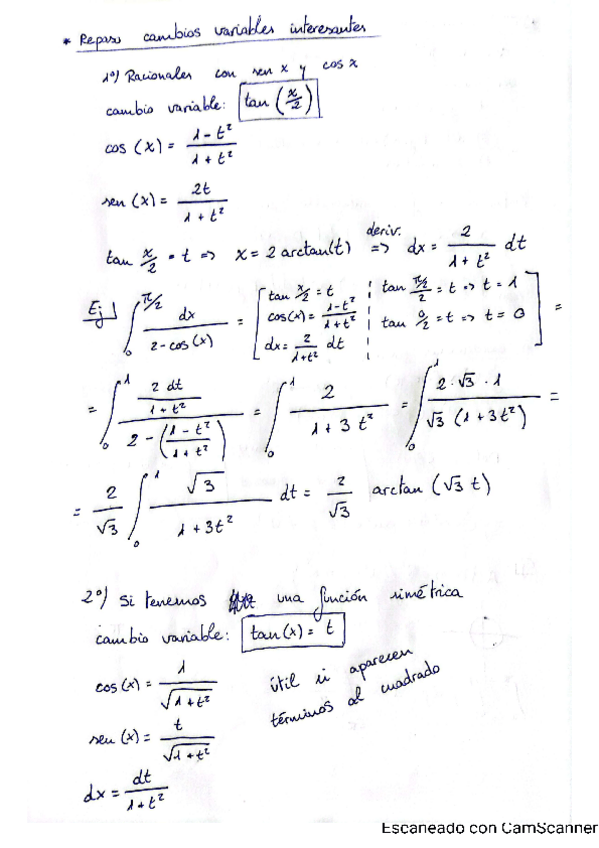 * Repaso cambios variables interesantes
1º) Racionales con sen x y cos x
cambio variable: tan (x/2)
cos (x) = (1 - t²)/(1 + t²)
sen (x) = 2t/(1 + t²)
tan x/2 = t => x = 2 arctan(t) deriv. => dx = 2/(1 + t²) dt
Ej ∫₀^(π/2) dx/(2 - cos(x)) = [ tan x/2 = t ¦ tan (π/2)/2 = t => t = 1
cos(x) = (1 - t²)/(1 + t²) ¦ tan 0/2 = t => t = 0
dx = 2/(1 + t²) dt ] =
= ∫₀¹ (2 dt/(1 + t²))/(2 - ((1 - t²)/(1 + t²))) = ∫₀¹ 2/(1 + 3t²) = ∫₀¹ (2·√3·1)/(√3 (1 + 3t²)) =
= 2/√3 ∫₀¹ √3/(1 + 3t²) dt = 2/√3 arctan (√3 t)
2º) Si tenemos una función simétrica
cambio variable: tan(x) = t
cos(x) = 1/√(1 + t²)
útil si aparecen
términos al cuadrado
sen (x) = t/√(1 + t²)
dx = dt/(1 + t²)
Escaneado con CamScanner